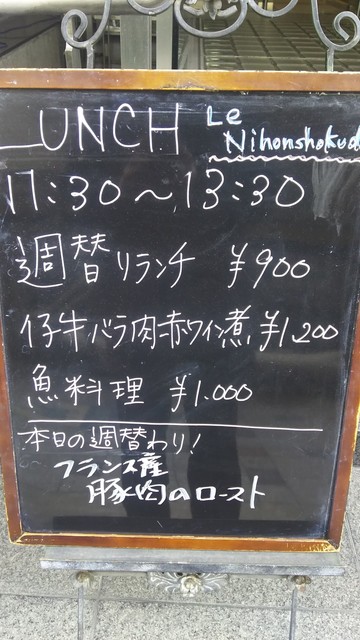 LUNCH
Le
Nihonshokud
11:30〜13:30
週替りランチ ¥900
仔牛バラ肉赤ワイン煮 ¥1,200
魚料理 ¥1.000
本日の週替わり!
フランス産
豚肉のロースト